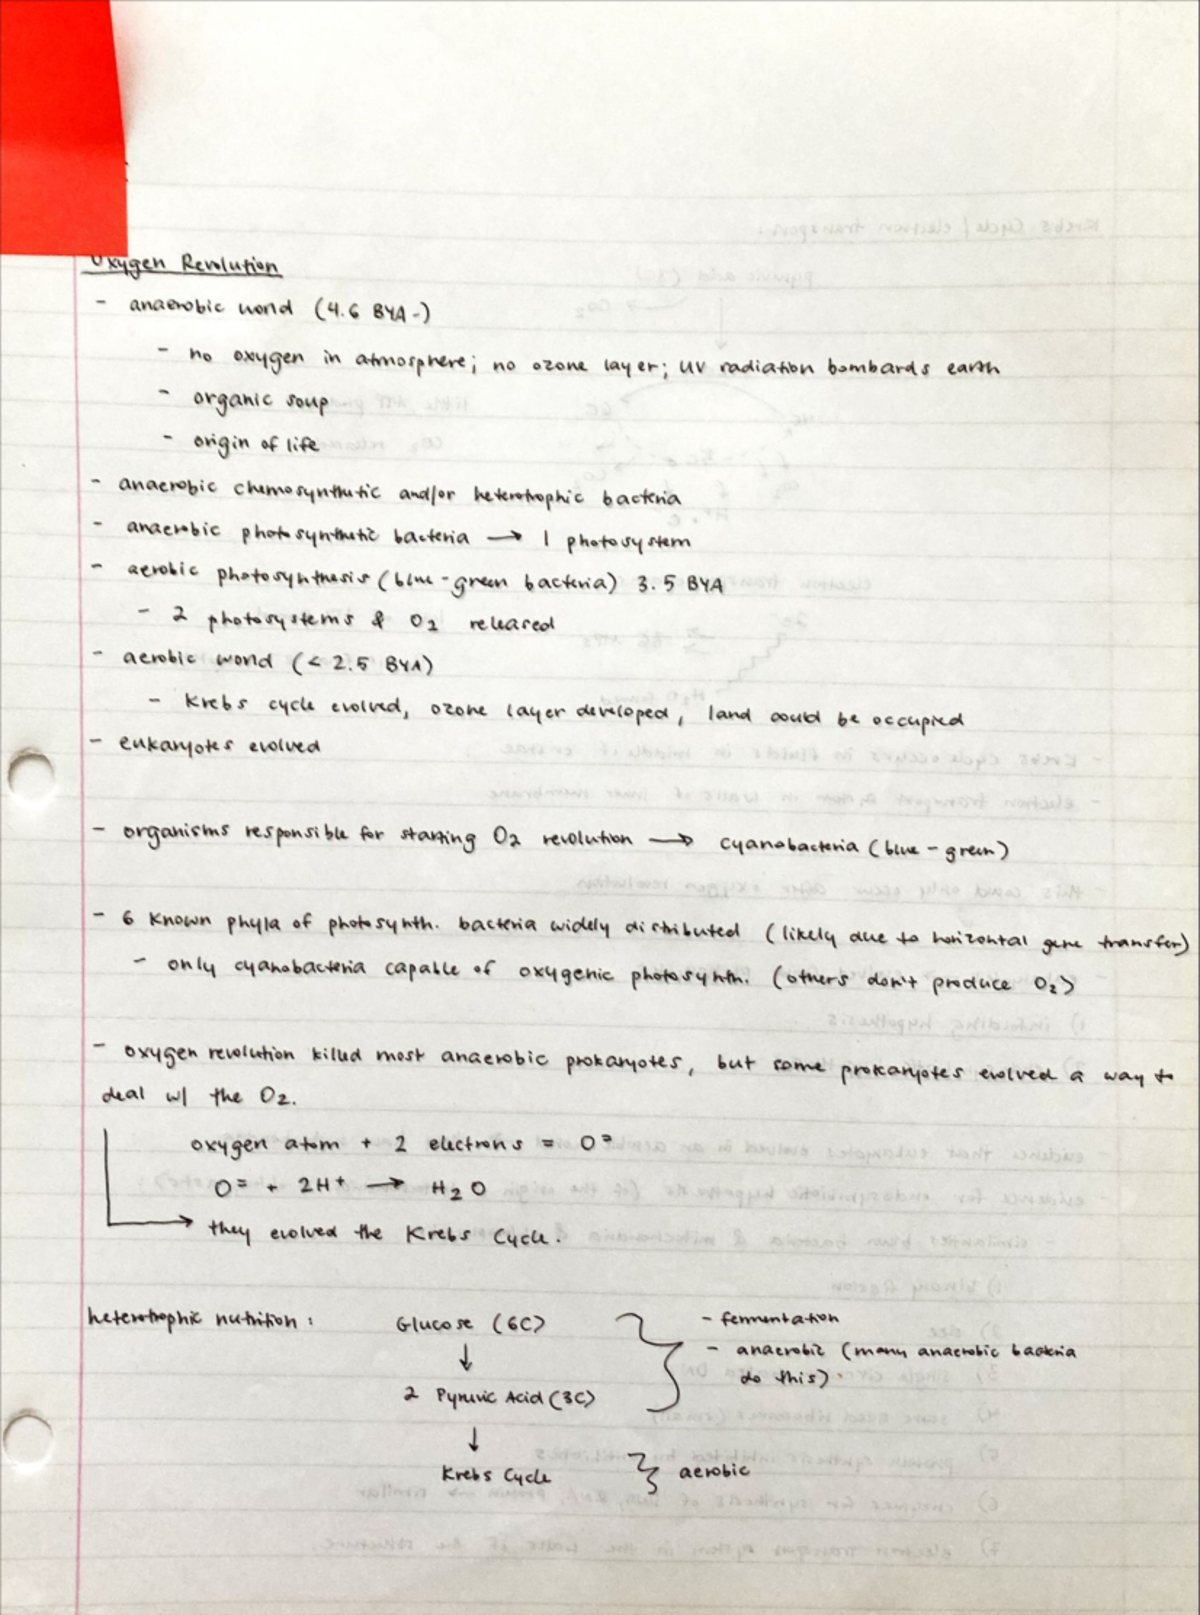 Oxygen Revolution
- anaerobic world (4.6 BYA-)
- no oxygen in atmosphere; no ozone layer; UV radiation bombards earth
- organic soup
- origin of life
- anaerobic chemosynthetic and/or heterotrophic bacteria
- anaerobic photosynthetic bacteria → 1 photosystem
- aerobic photosynthesis (blue-green bacteria) 3.5 BYA
- 2 photosystems & O₂ released
- aerobic world (< 2.5 BYA)
- Krebs cycle evolved, ozone layer developed, land could be occupied
- eukaryotes evolved
- organisms responsible for starting O₂ revolution → cyanobacteria (blue-green)
- 6 known phyla of photosynth. bacteria widely distributed (likely due to horizontal gene transfer)
- only cyanobacteria capable of oxygenic photosynth. (others don't produce O₂)
- oxygen revolution killed most anaerobic prokaryotes, but some prokaryotes evolved a way to
deal w/ the O₂.
oxygen atom + 2 electrons = O⁼
O⁼ + 2H⁺ → H₂O
→ they evolved the Krebs Cycle.
heterotrophic nutrition: Glucose (6C) - fermentation
↓ - anaerobic (many anaerobic bacteria
do this).
2 Pyruvic Acid (3C)
↓
Krebs Cycle } aerobic